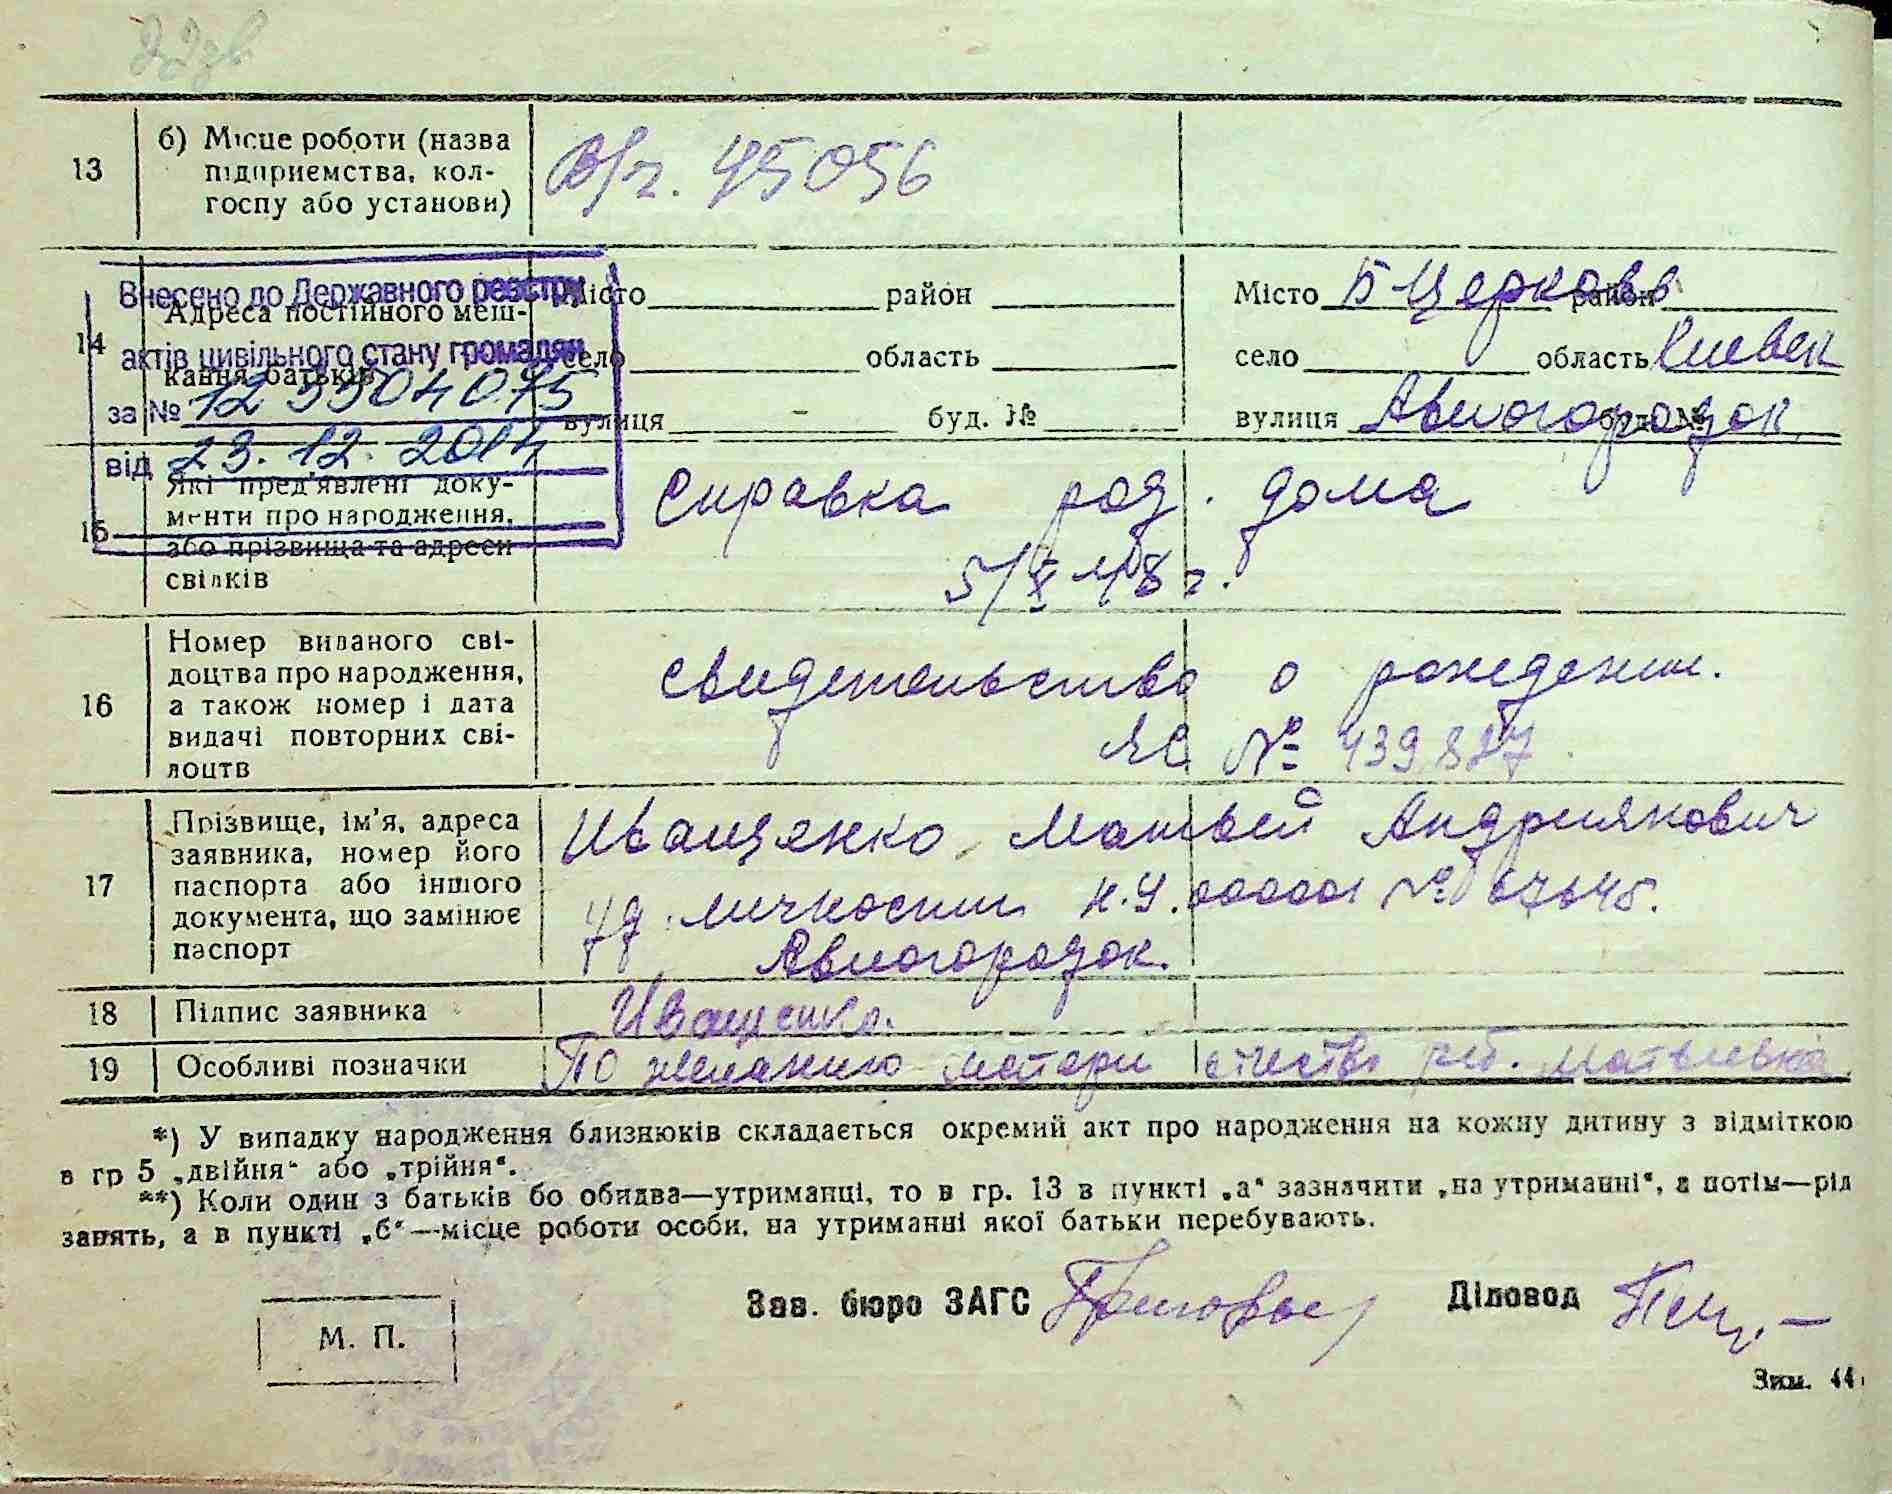 13
б) Місце роботи (назва
підприємства, кол-
госпу або установи)
В/ч. 45056
Внесено до Державного реєстру
актів цивільного стану громадян
за № 12 99904075
від 23. 12. 2014
14
Адреса постійного меш-
кання батьків
Місто район
село область
вулиця - буд. №
Місто Б-Церковь район
село область Киевск
вулиця Авиогородок буд. №
15
Які пред'явлені доку-
менти про народження,
або прізвища та адреси
свідків
Справка род. дома
5/X 48 г.
16
Номер виданого сві-
доцтва про народження,
а також номер і дата
видачі повторних сві-
доцтв
свидетельство о рождении.
ЯС № 439887
17
Прізвище, ім'я, адреса
заявника, номер його
паспорта або іншого
документа, що замінює
паспорт
Иващенко Матвей Андриянович
уд. личности
Авиогородок.
18
Підпис заявника
Иващенко.
19
Особливі позначки
По желанию матери отчество реб. Матвеевна
*) У випадку народження близнюків складається окремий акт про народження на кожну дитину з відміткою
в гр 5 „двійня“ або „трійня“.
**) Коли один з батьків бо обидва—утриманці, то в гр. 13 в пункті „а“ зазначити „на утриманні“, а потім—рід
занять, а в пункті „б“—місце роботи особи, на утриманні якої батьки перебувають.
Зав. бюро ЗАГС
Діловод
М. П.
Зам. 44